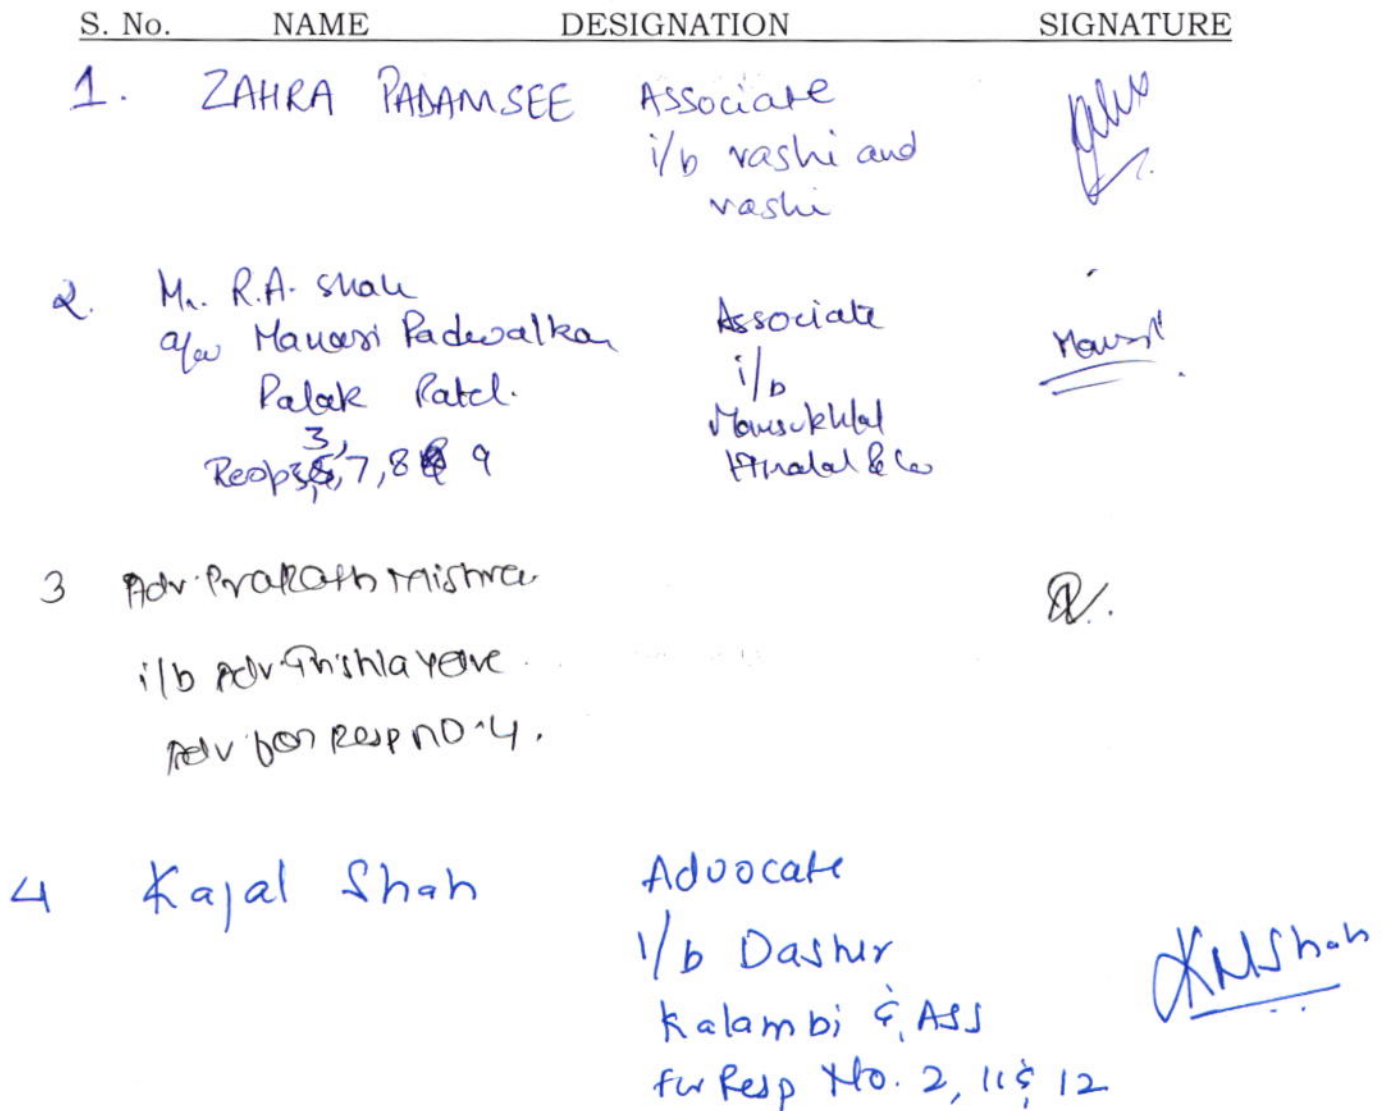 S. No. NAME DESIGNATION SIGNATURE
1. ZAHRA PADAMSEE Associate
i/b vashi and
vashi
2. Mr. R.A. Shah
a/w Manasi Padwalkar Associate
Palak Patel. i/b
Mansukhlal
Hiralal & Co
3,
Resp 7, 8 9
3 Adv. Prakash Mishra
i/b Adv. Trishla
Adv for Resp no. 4.
4 Kajal Shah Advocate
i/b
Kalambi & Ass
for Resp No. 2, 11 & 12
KNShah